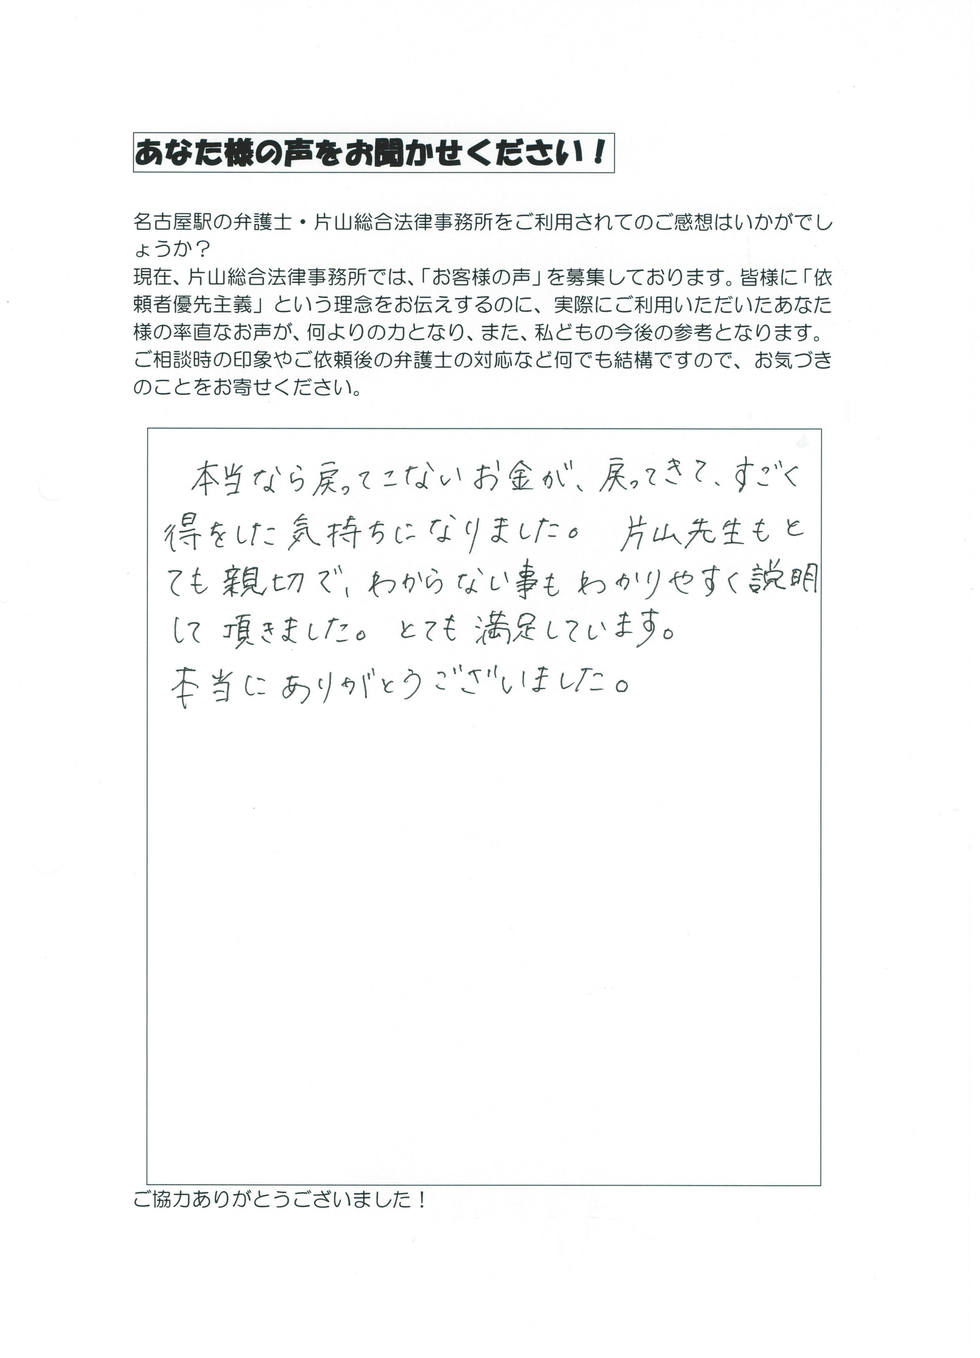 あなた様の声をお聞かせください！
名古屋駅の弁護士・片山総合法律事務所をご利用されてのご感想はいかがでし
ょうか？
現在、片山総合法律事務所では、「お客様の声」を募集しております。皆様に「依
頼者優先主義」という理念をお伝えするのに、実際にご利用いただいたあなた
様の率直なお声が、何よりの力となり、また、私どもの今後の参考となります。
ご相談時の印象やご依頼後の弁護士の対応など何でも結構ですので、お気づき
のことをお寄せください。
本当なら戻ってこないお金が、戻ってきて、すごく
得をした気持ちになりました。 片山先生もと
ても親切で、わからない事もわかりやすく説明
して頂きました。とても満足しています。
本当にありがとうございました。
ご協力ありがとうございました！